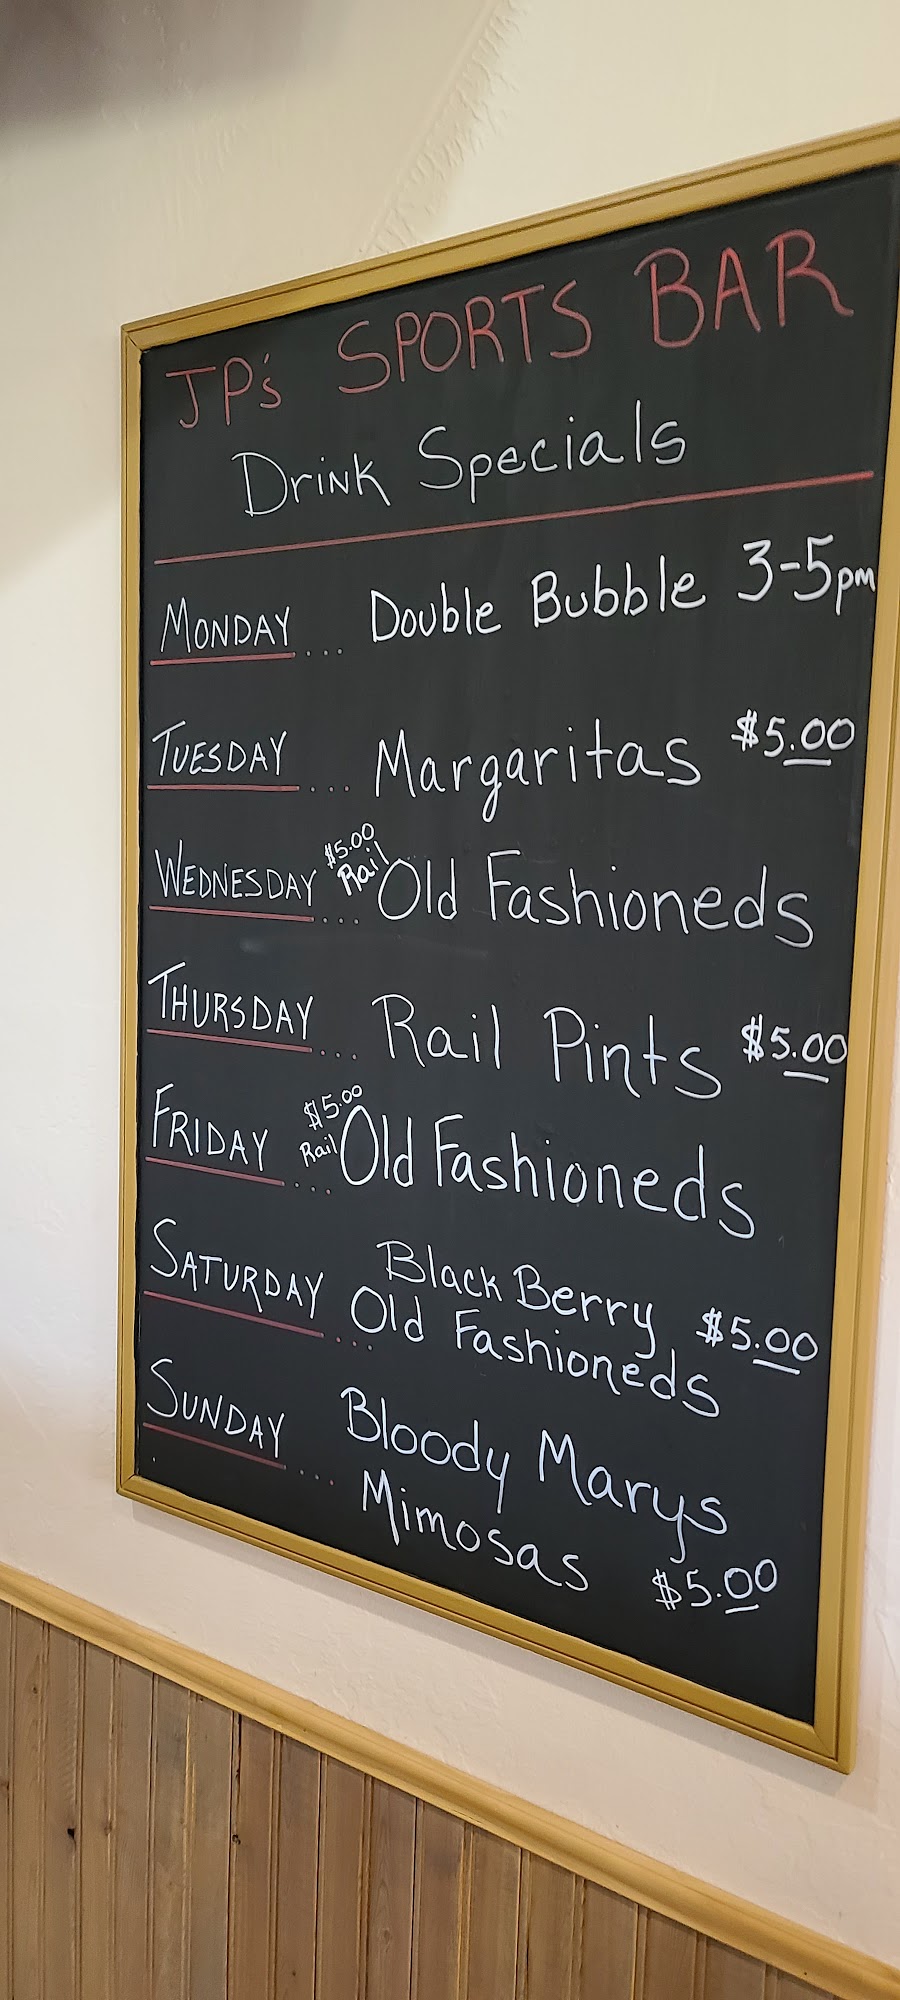 JP's SPORTS BAR
Drink Specials
MONDAY .... Double Bubble 3-5pm
TUESDAY .... Margaritas $5.00
WEDNESDAY .... $5.00 Rail Old Fashioneds
THURSDAY .... Rail Pints $5.00
FRIDAY .... $5.00 Rail Old Fashioneds
SATURDAY .... Black Berry
Old Fashioneds $5.00
SUNDAY .... Bloody Marys
Mimosas $5.00